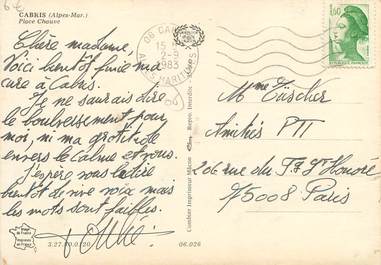 CABRIS (Alpes-Mar.)
Place Chauve
Chère madame,
Voici bientôt finie ma
cure à Cabris.
Je ne saurais dire
le bouleversement pour
moi, ni ma gratitude
envers le Calme et vous.
J'espère vous le dire
bientôt de vive voix mais
les mots sont faibles.
3.27.00.0120
06.026
Combier Imprimeur Mâcon
Repro. Interdite
06 CABRIS
15
2-9
1983
ALPES MARITIMES
1,60
Mme
Amitiés PTT
206 rue du Fg St Honoré
75008 Paris